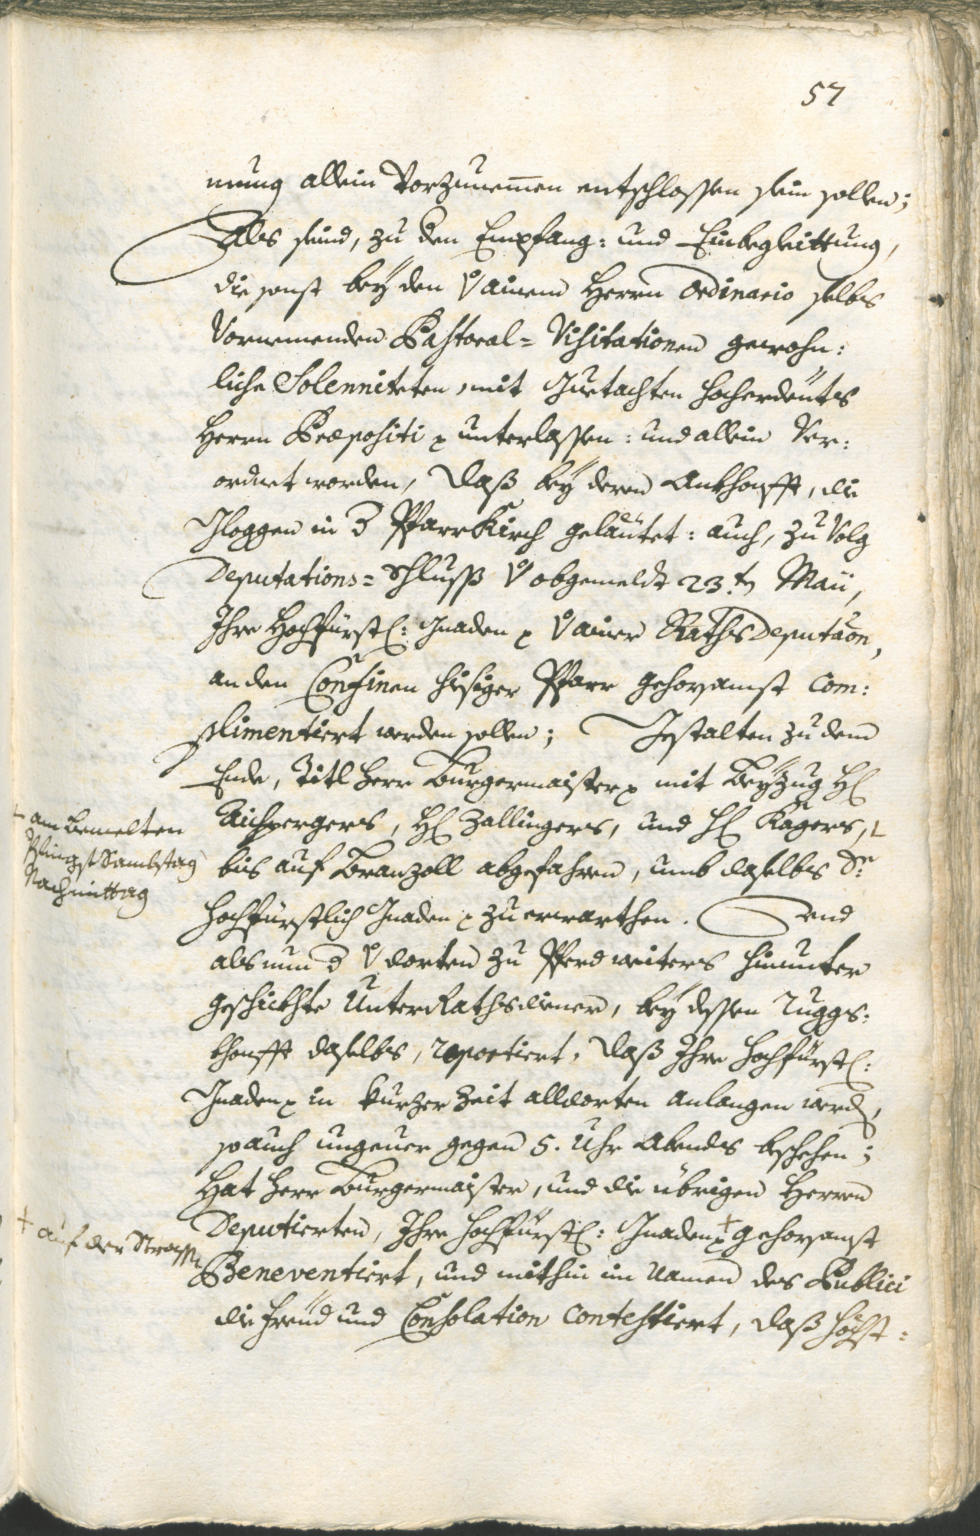 57
mung allein Vorzunemmen entschlossen sein sollen;
Als seind, zu dem Empfang: und Einbegleittung,
die sonst bey den V ainem Herrn Ordinario selbs
Vornemmenden Pastoral= Visitationen gewohn:
liche Solenniteten, mit Guetachten hocherdeuts
Herrn Præpositi unterlassen: und allein Ver:
ordnet worden, daß bey deren Ankhonfft, die
Gloggen in d Pfarrkirch geläutet: auch, zu Volg
Deputations= Schluß V obgemelt 23.tn Maii,
Ihre Hochfürstl: Gnaden V ainer Raths Deputaon,
an den Confinen hisiger Pfarr gehorsamst com:
plimentiert werden sollen; Gestalten zu dem
Ende, Titl Herr Burgermaister mit Beyzug H
Aichpergers, H Zallingers, und H Kagers,+
+ am bemelten
Pfingst Sambstag
Nachmittag
bis auf Branzoll abgefahren, umb daselbs Sr
Hochfürstlich Gnaden zu erwarthen. Und
als nun d V dorten zu Pferd weiters hinunter
geschickhte Unter Rathsdiener, bey dessen Ruggs:
khonfft daselbs, reportiert, daß Ihre Hochfürstl:
Gnaden in kurzer Zeit alldorten anlangen werd,
so auch ungeuer gegen 5. Uhr Abends beschehen;
Hat Herr Burgermaister, und die übrigen Herren
Deputierten, Ihre Hochfürstl: Gnaden + gehorsamst
+ auf der Strass
Beneventiert, und mithin im Namen des Publici
die Freud und Consolation contestiert, daß höchst=